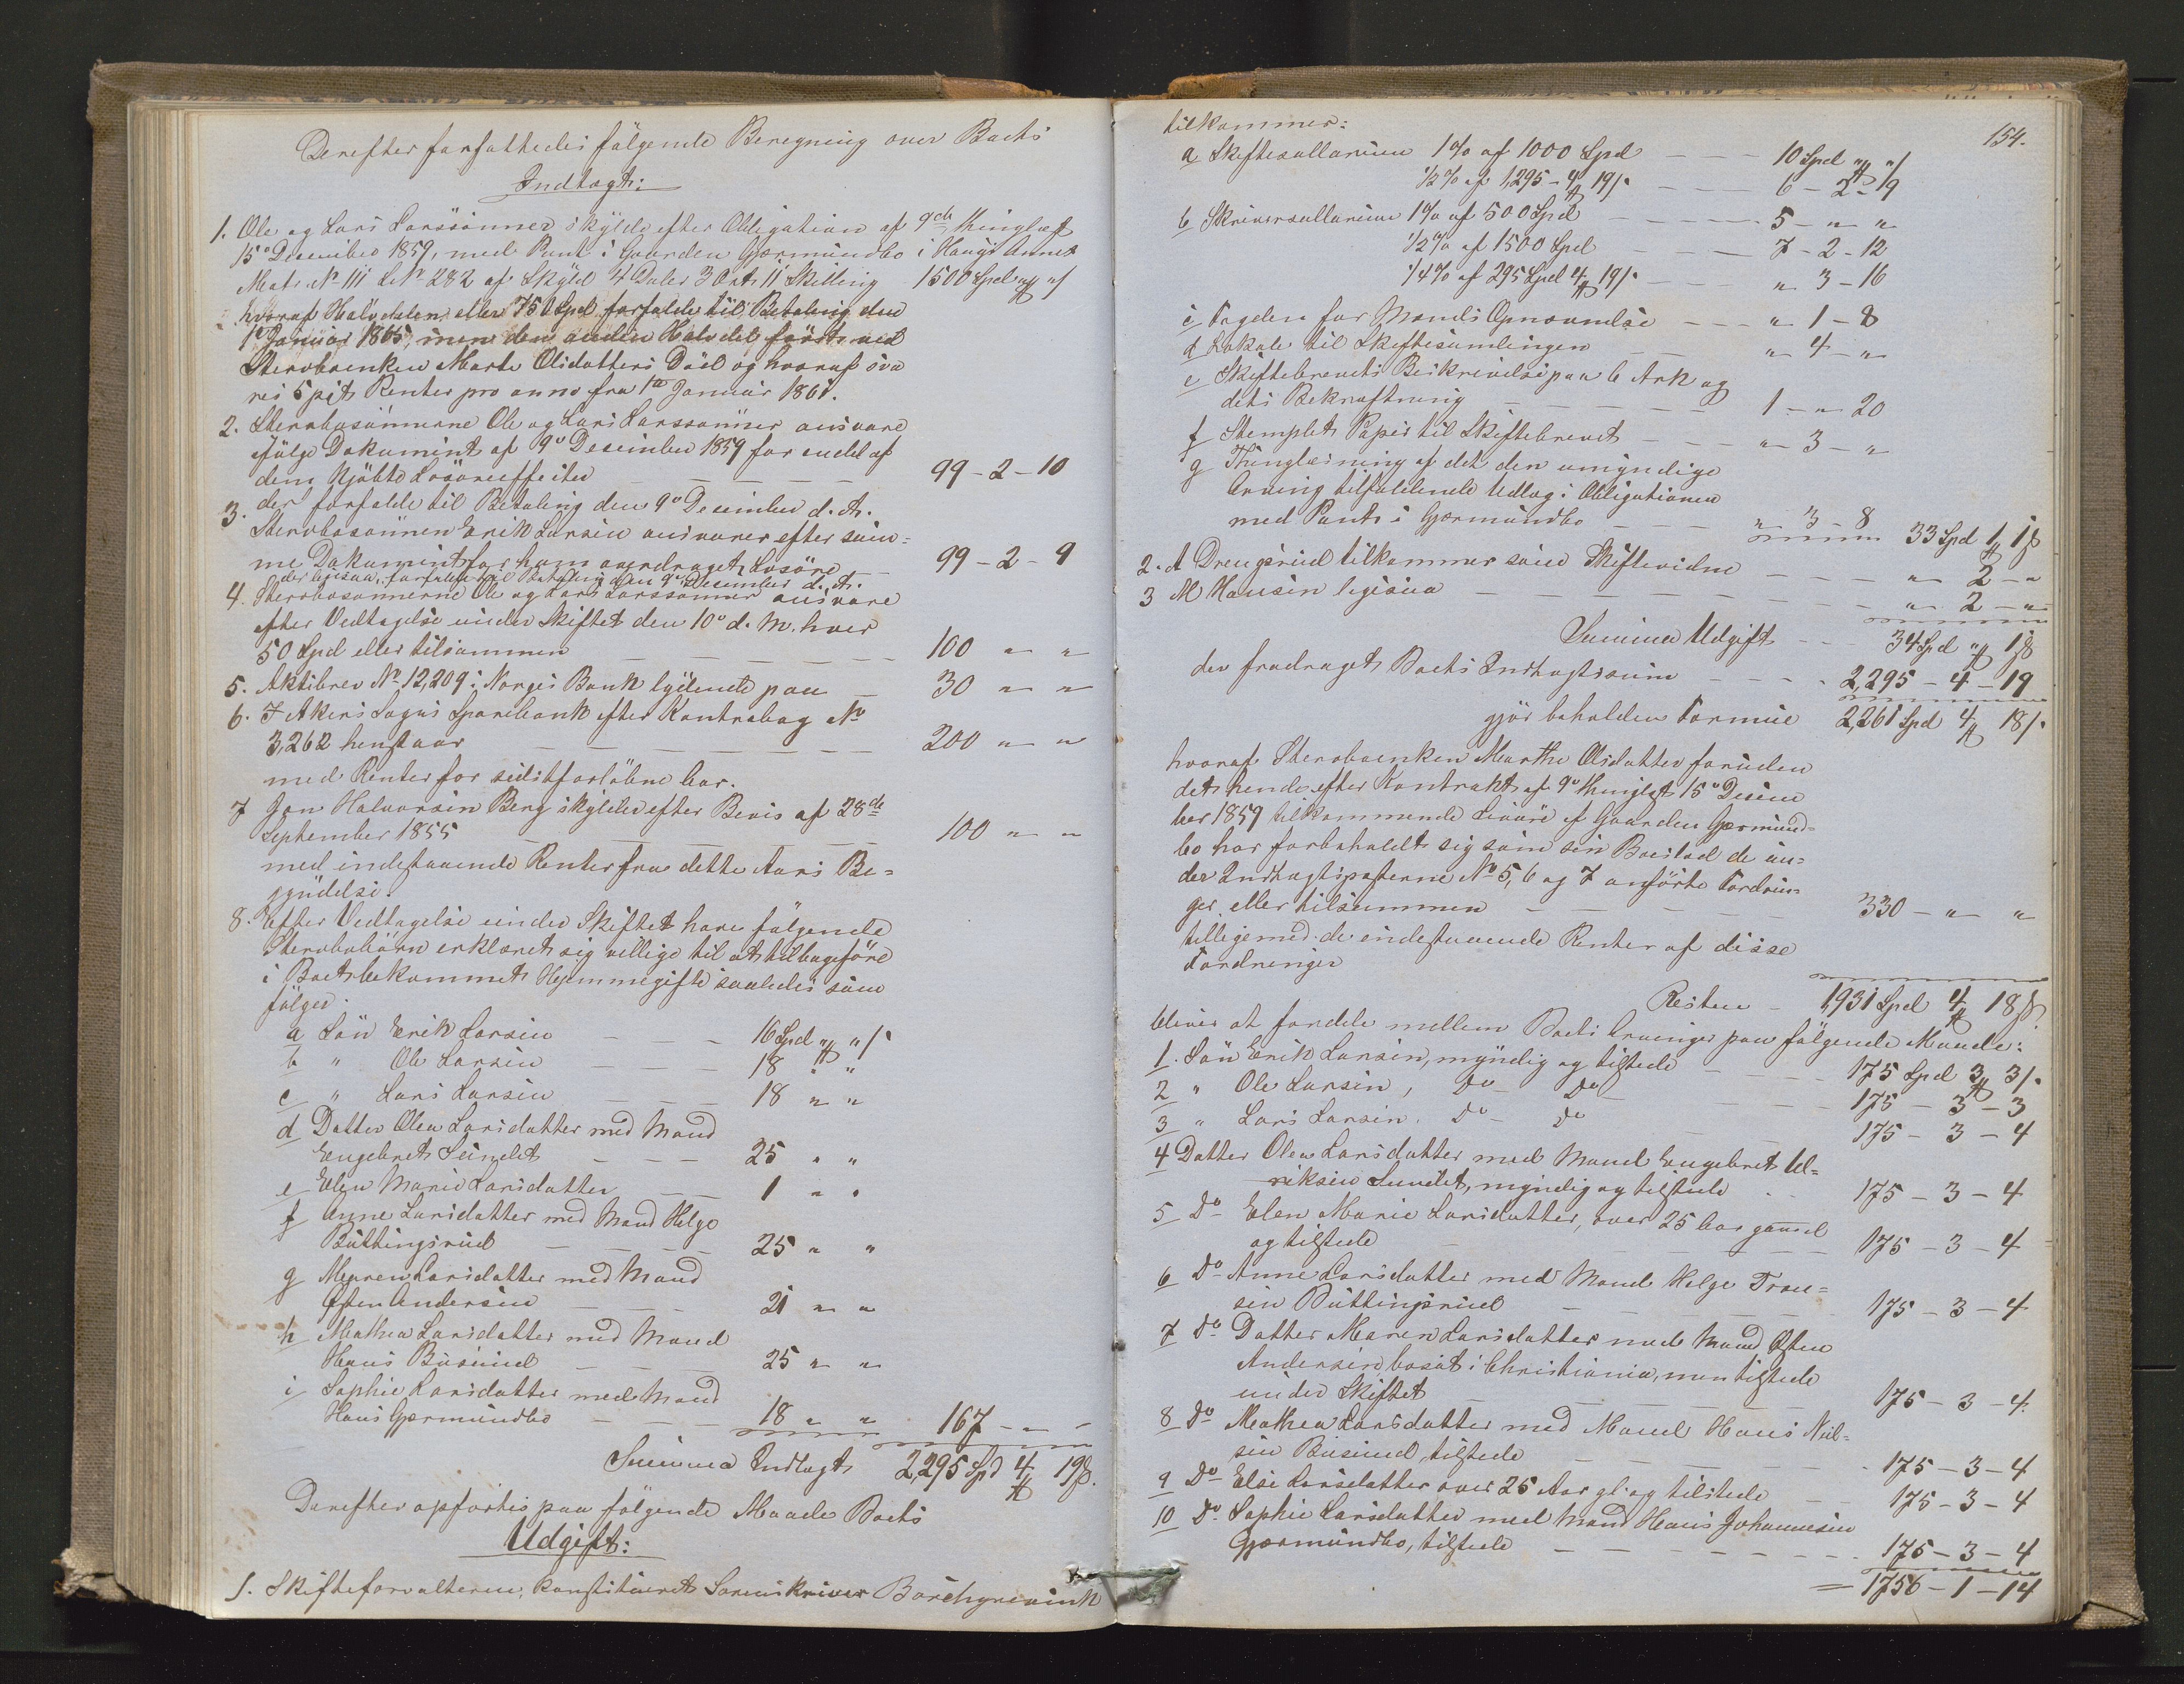 Derefter forfattedes følgende Beregning over Boets
Indtægt:
1. Ole og Lars Larssønner skylde efter Obligation af 9de thinglæst
15o December 1859, med Pant i Gaarden Gjermundbo i Haugs Annex
Matr. No 111 LNo 282 af Skyld 4 Daler 3 Ort 11 Skilling 1500 Spd " "
hvoraf Halvdelen eller 750 Spd forfalde til Betaling den
1ste Januar 1865, men den anden Halvdel først ved
Sterboenken Marte Olsdatters Død og hvoraf sva
res 5 pCt Renter pro anno fra 1ste Januar 1861.
2. Sterbosønnerne Ole og Lars Larssønner ansvare
ifølge Dokument af 9o December 1859 for endel af
dem kjøbte Løsøreeffecter — — — 99 - 2 - 10
der forfalde til Betaling den 9o December d. A.
3. Sterbosønnen Erik Larsen ansvarer efter sam=
me Dokument for ham overdraget Løsøre — 99 - 2 - 9
der ligesaa forfalder til Betaling den 9o December d. A.
4. Sterbosønnerne Ole og Lars Larssønner ansvare
efter Vedtagelse under Skiftet den 10o d. M. hver
50 Spd eller tilsammen — — — 100 " "
5. Aktiebrev No 12,209 i Norges Bank lydende paa — 30 " "
6. I Akers Sogns Sparebank efter Kontrabog No
3,262 henstaar — — — 200 " "
med Renter for sidstforløbne Aar.
7 Jon Halvorsen Berg skylder efter Bevis af 28de
September 1855 — — — 100 " "
med indestaaende Renter fra dette Aars Be=
gyndelse.
8. Efter Vedtagelse under Skiftet have følgende
Sterbobørn erklæret sig villige til at tilbageføre
i Boet bekommet Hjemmegifte saaledes som
følger.
a Søn Erik Larsen — — — 16 Spd " "
b " Ole Larsen — — — 18 " "
c " Lars Larsen — — — 18 " "
d Datter Olea Larsdatter med Mand
Engebret Sundet — — — 25 " "
e Elen Marie Larsdatter — — 1 " "
f Anne Larsdatter med Mand Helge
Buttingsrud — — — 25 " "
g Maren Larsdatter med Mand
Østen Andersen — — — 21 " "
h Mathea Larsdatter med Mand
Hans Busund — — — 25 " "
i Sophie Larsdatter med Mand
Hans Gjermundbo — — — 18 " " 167 - " -
Summa Indtægt 2,295 Spd 4 19
Derefter opførtes paa følgende Maade Boets
Udgift:
1. Skifteforvalteren, konstitueret Sorenskriver Borchgrevink
154.
tilkommer:
a Skiftesallarium 1% af 1000 Spd — — — 10 Spd " "
1/2% af 1,295 - 4 19 — — — 6 - 2 - 19
b Skriversallarium 1% af 500 Spd — — — 5 - " "
1/2% af 1500 Spd — — — 7 - 2 - 12
1/4% af 295 Spd 4 19 — — — " 3 - 16
c Tagden for Mænds Opnævnelse — — — " 1 - 8
d Lokale til Skiftesamlingen — — " 4 - "
e Skiftebrevets Beskrivelse paa 6 Ark og
dets Bekræftning — — — 1 - " 20
f Stemplet Papir til Skiftebrevet — — — " 3 - "
g Thinglæsning af det den umyndige
Arving tilfaldende Udlæg i Obligationen
med Pant i Gjermundbo — — — " 3 - 8 33 Spd 1 18
2. A Drengsrud tilkommer som Skiftevidne — — — " 2 - "
3 M Hansen ligesaa — — — " 2 - "
Summa Udgift — — 34 Spd " 18
der fradraget Boets Indtægtssum — — — 2,295 - 4 - 19
gjør beholden Formue 2,261 Spd 4 18
hvoraf Sterboenken Marthe Olsdatter foruden
det hende efter Kontrakt af 9o thinglæst 15o Decem
ber 1859 tilkommende Livøre af Gaarden Gjermund=
bo har forbeholdt sig som sin Boeslod de un=
der Indtægtsposterne No 5, 6 og 7 anførte Fordrin
ger eller tilsammen — — — 330 - " "
tilligemed de indestaaende Renter af disse
Fordringer
Resten — 1,931 Spd 4 18
bliver at fordele mellem Boets Arvinger paa følgende Maade:
1. Søn Erik Larsen, myndig og tilstede — — — 175 Spd 3 3
2 " Ole Larsen, Do - Do — — — 175 - 3 - 3
3 " Lars Larsen. Do - do — — 175 - 3 - 4
4 Datter Olea Larsdatter med Mand Engebret Ul=
riksen Sundet, myndig og tilstede . . 175 - 3 - 4
5 Do Elen Marie Larsdatter, over 25 Aar gammel
og tilstede — — — 175 - 3 - 4
6 Do Anne Larsdatter med Mand Helge Tron=
sen Buttingsrud — — — 175 - 3 - 4
7 Do Datter Maren Larsdatter med Mand Østen
Andersen bosat i Christiania, men tilstede
under Skiftet — — — 175 - 3 - 4.
8 Do Mathea Larsdatter med Mand Hans Niel=
sen Busund, tilstede — — — 175 - 3 - 4
9 Do Else Larsdatter over 25 Aar gl. og tilstede — 175 - 3 - 4
10 Do Sophie Larsdatter med Mand Hans Johannesen
Gjermundbo, tilstede — — — 175 - 3 - 4
= 1756 - 1 - 14